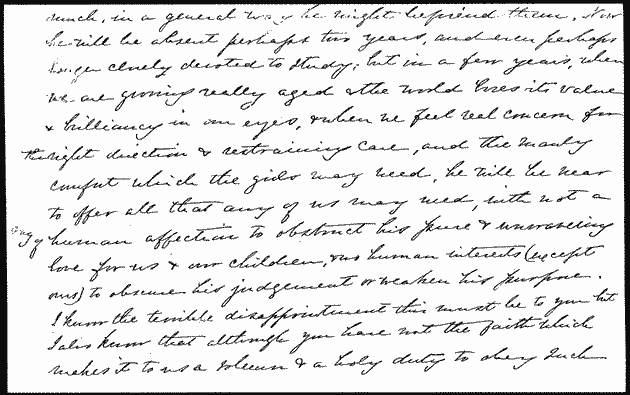 much, in a general way he might befriend them. Now
he will be absent perhaps two years, and even perhaps
longer closely devoted to study; but in a few years, when
we are growing really aged & the world loses its value
& brilliancy in our eyes, & when we feel real concern for
the right direction & restraining care, and the manly
comfort which the girls may need, he will be near
to offer all that any of us may need, with not a
human affection to obstruct his pure & unwavering
love for us & our children, & no human interests (except
ours) to obscure his judgement or weaken his purpose.
I know the terrible disappointment this must be to you but
I also know that although you have not the faith which
makes it to us a solemn & a holy duty to obey such